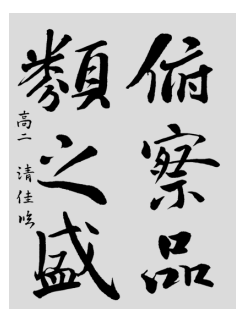 俯察品
類之盛
高二 清佳